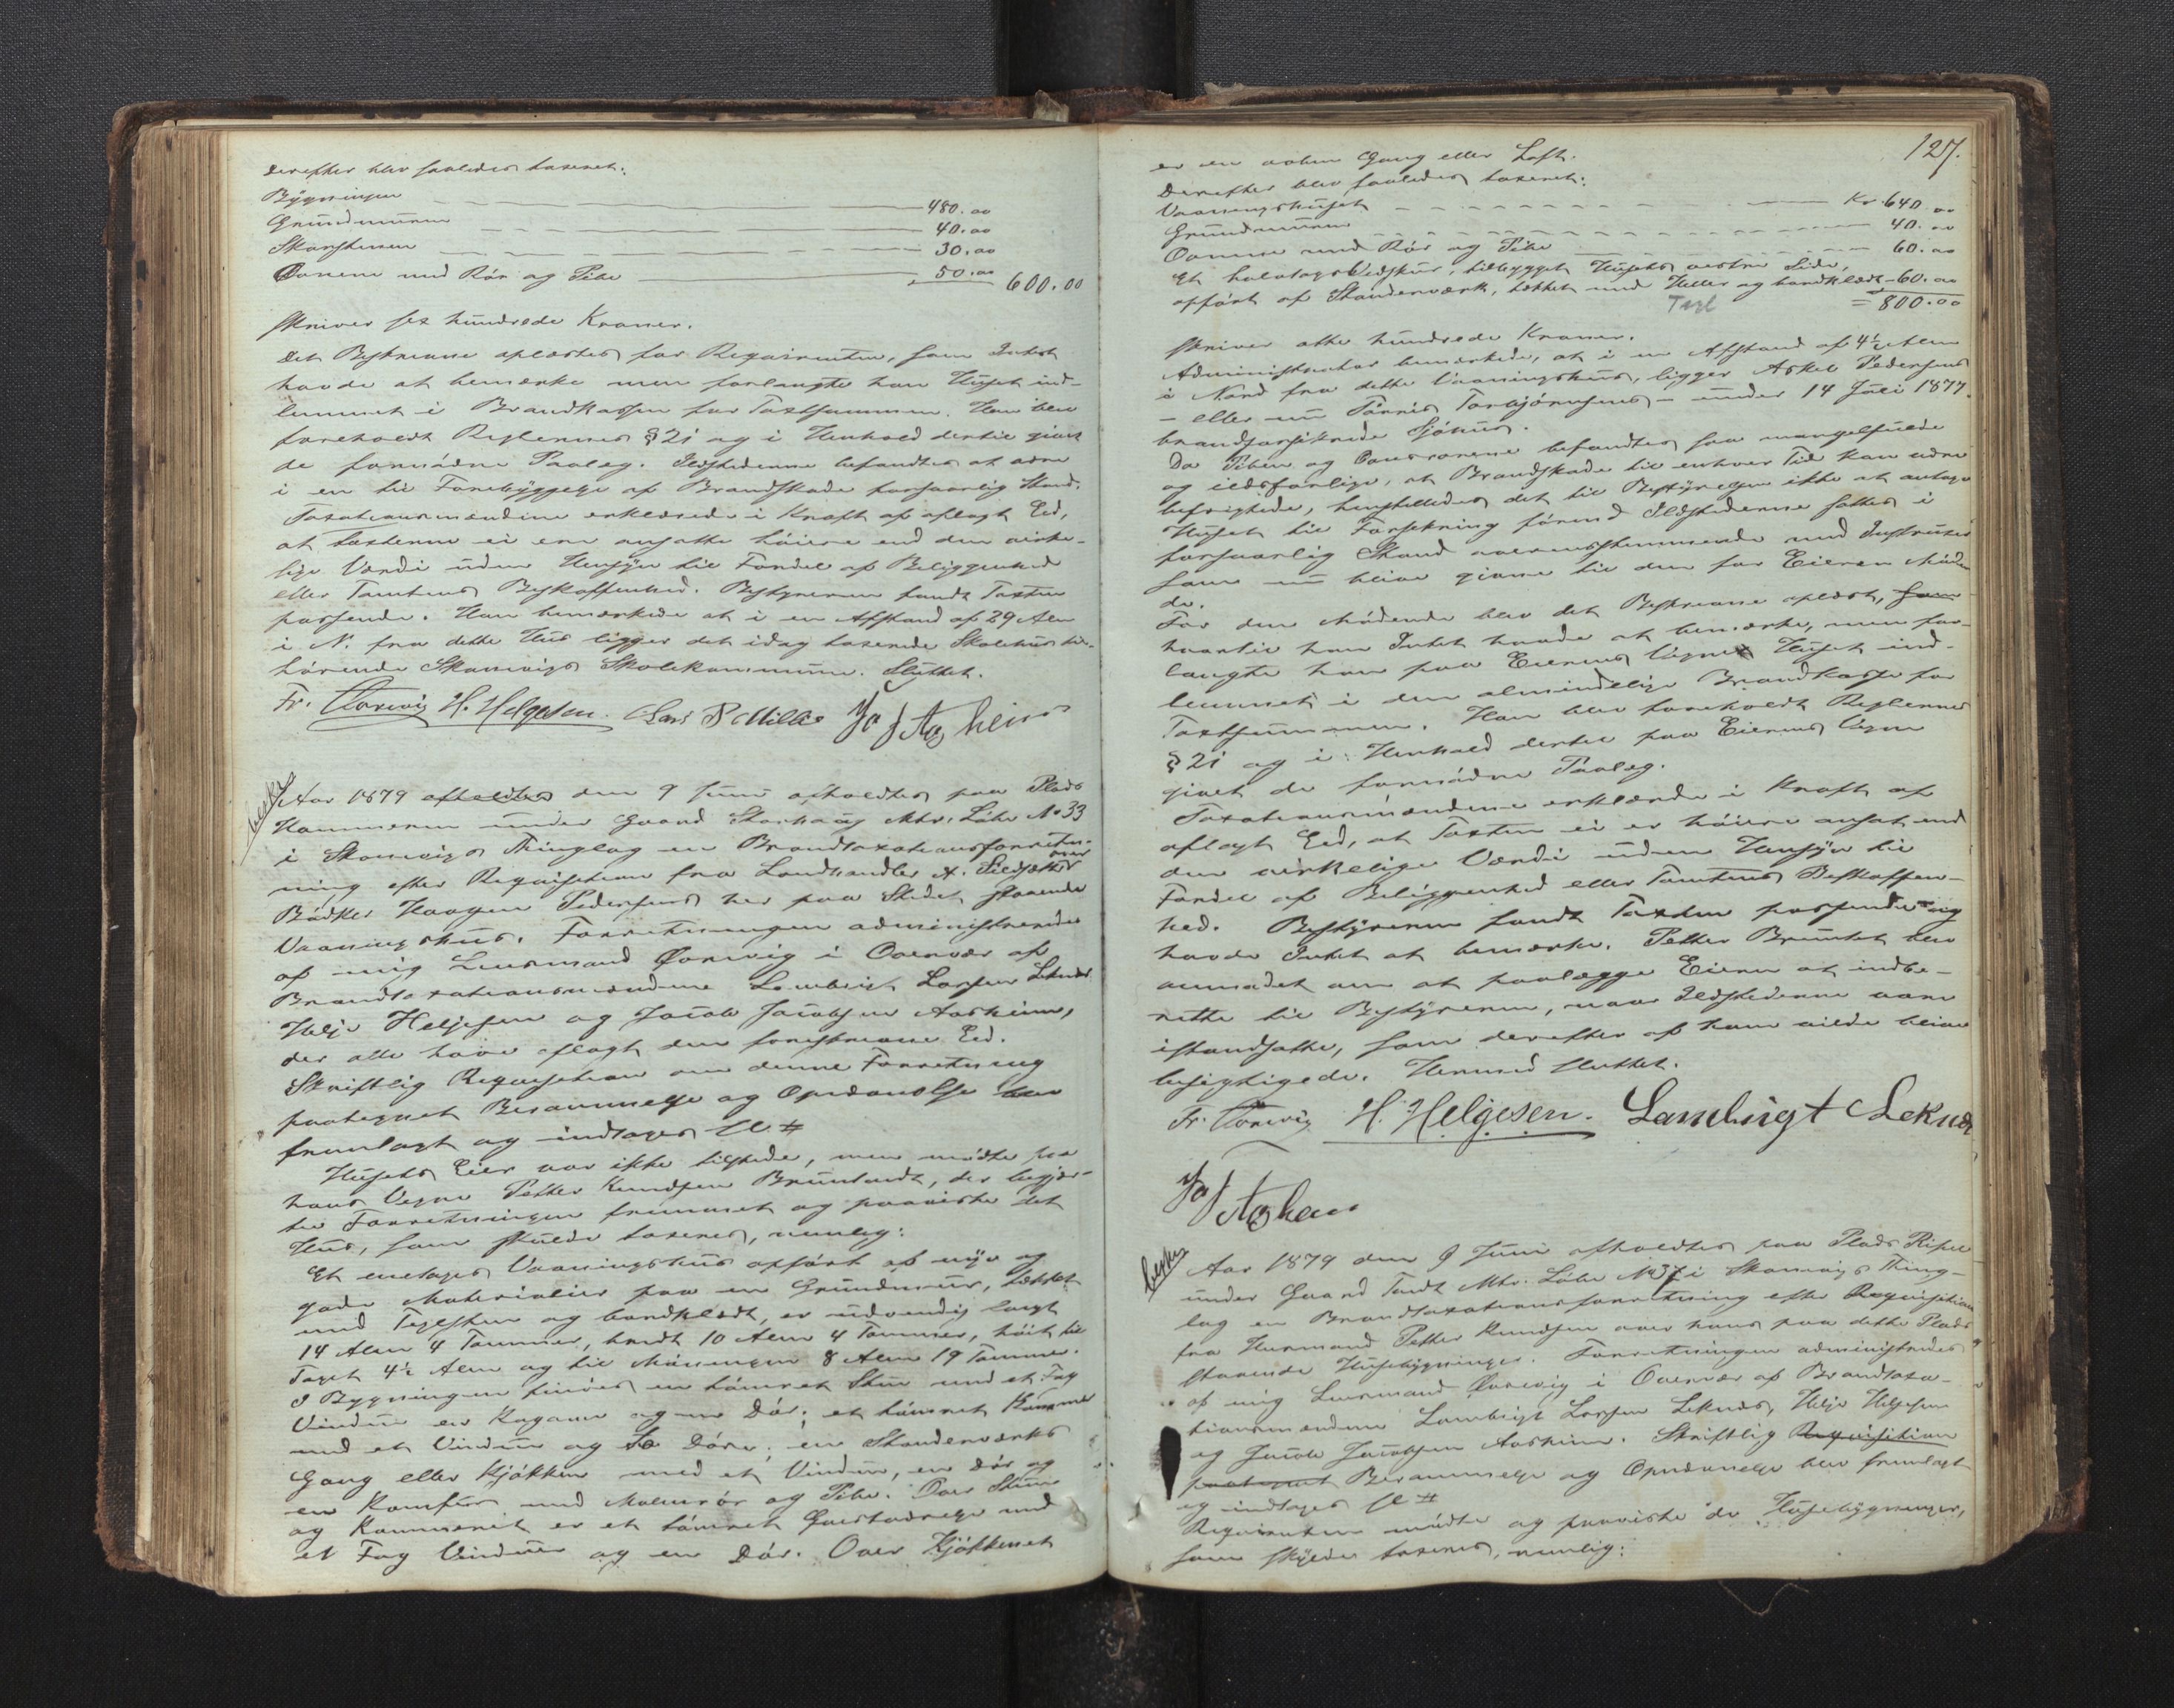 derefter blev saaledes taxeret:
Bygningen 480.00
Grundmuren 40.00
Skorstenen 30.00
Ovnene med Rör og Pibe 50.00 600.00
skriver sex hundrede Kroner.
Det Beskrevne oplæstes for Reqvirenten, som Intet
havde at bemærke men forlangte han Huset ind-
lemmet i Brandkassen for Taxtsummen. Han blev
foreholdt Reglernes § 21 og i Henhold dertil givet
de fornödne Paalæg. Ildstederne befandtes at være
i en til Forebyggelse af Brandskade forsvarlig Stand.
Taxationsmændene erklærede i Kraft af aflagt Eed,
at Taxterne ei ere ansatte höiere end den virke-
lige Værdi uden Hensyn til Fordel af Beliggenhed
eller Tomtens Beskaffenhed. Bestyreren fandt Taxten
passende. Han bemærkede at i en Afstand af 29 Alen
i N. fra dette Hus ligger det idag taxerede Skolehus til-
hörende Skonevigs Skolekommune. Sluttet.
Fr. H. Helgesen. Lars P Milli
Aar 1879 afholdtes den 9 Juni afholdtes paa Plads
Hammeren under Gaard Mtr. Löbe No 33
i Skonevigs Thinglag en Brandtaxationsforret-
ning efter Reqvisition fra Landhandler A. over
Bödker Haagen Pedersens her paa Stedet staaende
Vaaningshus. Forretningen administreredes
af mig Lensmand i Overvær af
Brandtaxationsmændene Lambrigt Larsen Leknes
Helje Heljesen og Jacob Jacobsen Aasheim,
der alle have aflagt den foreskrevne Eed.
Skriftlig Reqvisition om denne Forretning
paategnet Berammelse og Opnævnelse blev
fremlagt og indtages
Husets Eier var ikke tilstede, men mödte paa
hans Vegne Petter Knudsen Bruntveit, der begjær-
te Forretningen fremmet og paaviste det
Hus, som skulde taxeres, nemlig:
Et enetages Vaaningshus opfört af nye og
gode Materialier paa en Grundmuur, tækket
med Teglsten og bordklædt, er udvendig langt
14 Alen 4 Tommer, bredt 10 Alen 4 Tommer, höit til
Taget 4½ Alen og til Möningen 8 Alen 19 Tommer.
I Bygningen findes en tömret Stue med et Fag
Vindue en Kagovn og en Dör; et tömret Kammer
med et Vindue og to Döre; en Standerværks
Gang eller Kjökken med et Vindue, en Dör og
en Komfur med Rör og Pibe. Over Stuen
og Kammeret er et tömret med
et Fag Vinduer og en Dör. Over Kjökkenet
127.
er en aaben Gang eller Loft.
Derefter blev saaledes taxeret:
Vaaningshuset Kr. 640.00
Grundmuren 40.00
Ovnene med Rör og Pibe 60.00
Et halvtags Vedskur, tilbygget Husets vestre Side,
opfört af Standerværk, tækket med Heller og bordklædt - 60.00
Tegl = 800.00
skriver otte hundrede Kroner.
Administrator bemærkede, at i en Afstand af 4½ Alen
i Nord fra dette Vaaningshus, ligger Askel Pedersens
- eller nu Torbjörnsens - under 14 Juli 1877
brandforsikrede Sjöhus.
Da Piben og Ovnrörene befandtes saa mangelfulde
og ildsfarlige, at Brandskade til enhver Tid kan være
befrygtede, henstilledes det til Bestyrelsen ikke at antage
Huset til Forsikring förend Ildstederne sattes i
forsvarlig Stand overensstemmende med Instruxer
som nu bleve givne til den for Eieren Möden-
de.
For den Mödende blev det Beskrevne oplæst, som
hvortil han Intet havde at bemærke, men for-
langte han paa Eierens Vegne Huset ind-
lemmet i den almindelige Brandkasse for
Taxtsummen. Han blev foreholdt Reglernes
§ 21 og i Henhold dertil paa Eierens Vegne
givet de fornödne Paalæg.
Taxationsmændene erklærede i Kraft af
aflagt Eed, at Taxten ei er höiere ansat end
den virkelige Værdi uden Hensyn til
Fordel af Beliggenhed eller Tomtens Beskaffen-
hed. Bestyreren fandt Taxten passende og
havde Intet at bemærke. Petter Bruntvet blev
anmodet om at paalægge Eieren at indbe-
rette til Bestyreren, naar Ildstederne vare
istandsatte, som derefter af ham vilde blive
besigtigede. Hermed sluttet.
Fr. H. Helgesen. Lambrigt Leknes
Aar 1879 den 9 Juni afholdtes paa Plads
under Gaard Tvedt Mtr. Löbe No i Skonevigs Thing-
lag en Brandtaxationsforretning efter Reqvisition
fra Husmand Petter Knudsen over hans paa dette Plads
staaende Husebygninger. Forretningen administredes
af mig Lensmand i Overvær af Brandtaxa-
tionsmændene Lambrigt Larsen Leknes, Helje Heljesen
og Jacob Jacobsen Aasheim. Skriftlig Reqvisition
paategnet Berammelse og Opnævnelse blev fremlagt
og indtages
Reqvirenten mödte og paaviste de Husebygninger,
som skulde taxeres, nemlig: